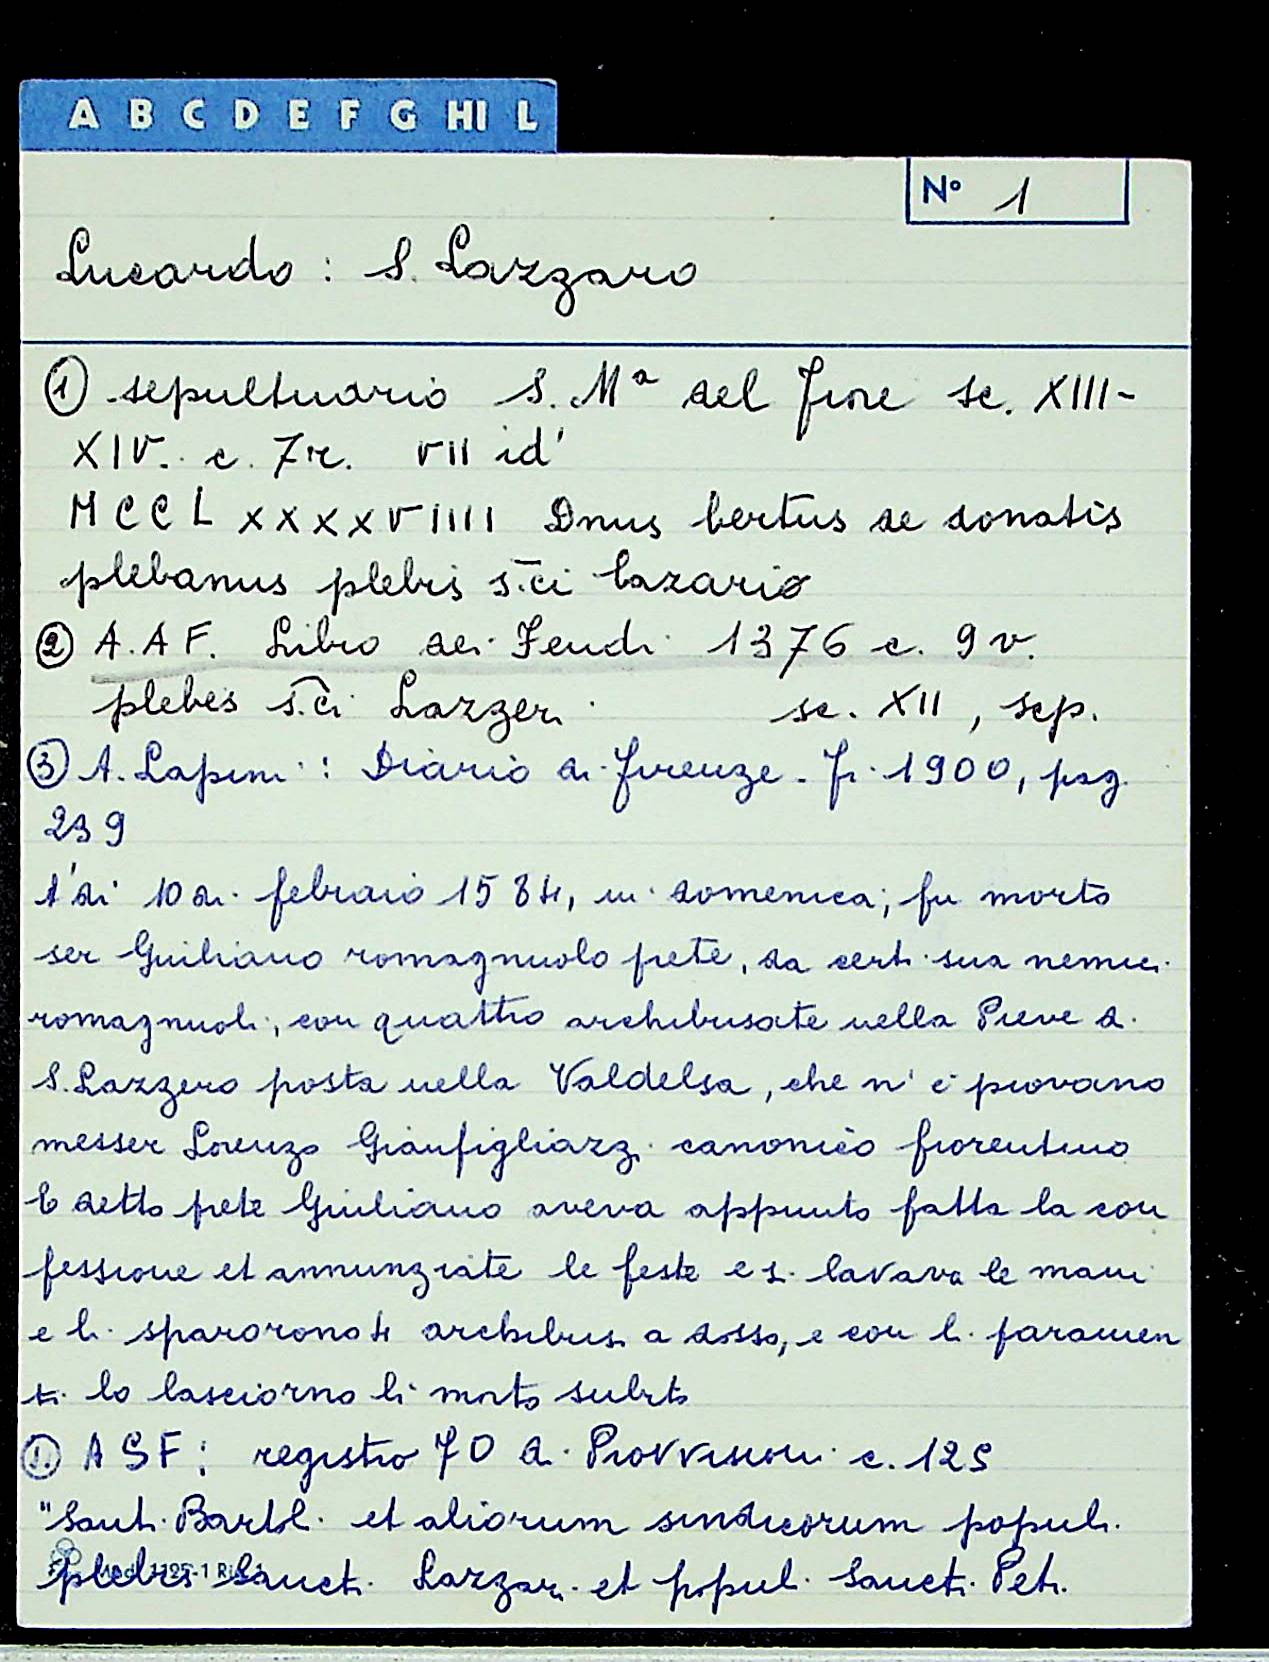 A B C D E F G HI L
N° 1
Lucardo : S. Lazzaro
① sepultuario S. Mª del Fiore sc. XIII-
XIV. c. 7r. VII id'
MCCLXXXXVIIII Dnus bertus de donatis
plebanus plebis s.ci lazario
② A.A.F. Libro dei Feudi 1376 c. 9v.
plebes s.ci Lazzeri sc. XII, sep.
③ A. Lapini : Diario di Firenze - Fi. 1900, pag.
239
A' di 10 di febraio 1584, in domenica; fu morto
ser Guiliano romagnuolo prete, da certi sua nemici
romagnuoli, con quattro archibusate nella Pieve di
S. Lazzero posta nella Valdelsa, che n' è piovano
messer Lorenzo Gianfigliazzi canonico fiorentino
E detto prete Giuliano aveva appunto fatta la con
fessione et annunziate le feste e si lavava le mani
e li spararono 4 archibusi a dosso, e con li faramen
ti lo lasciorno lì morto subito
①. ASF: registro 70 di Provvisioni c. 125
"Santi Bartol. et aliorum sindicorum populi
plebis Sancti Lazzari et populi Sancti Petri